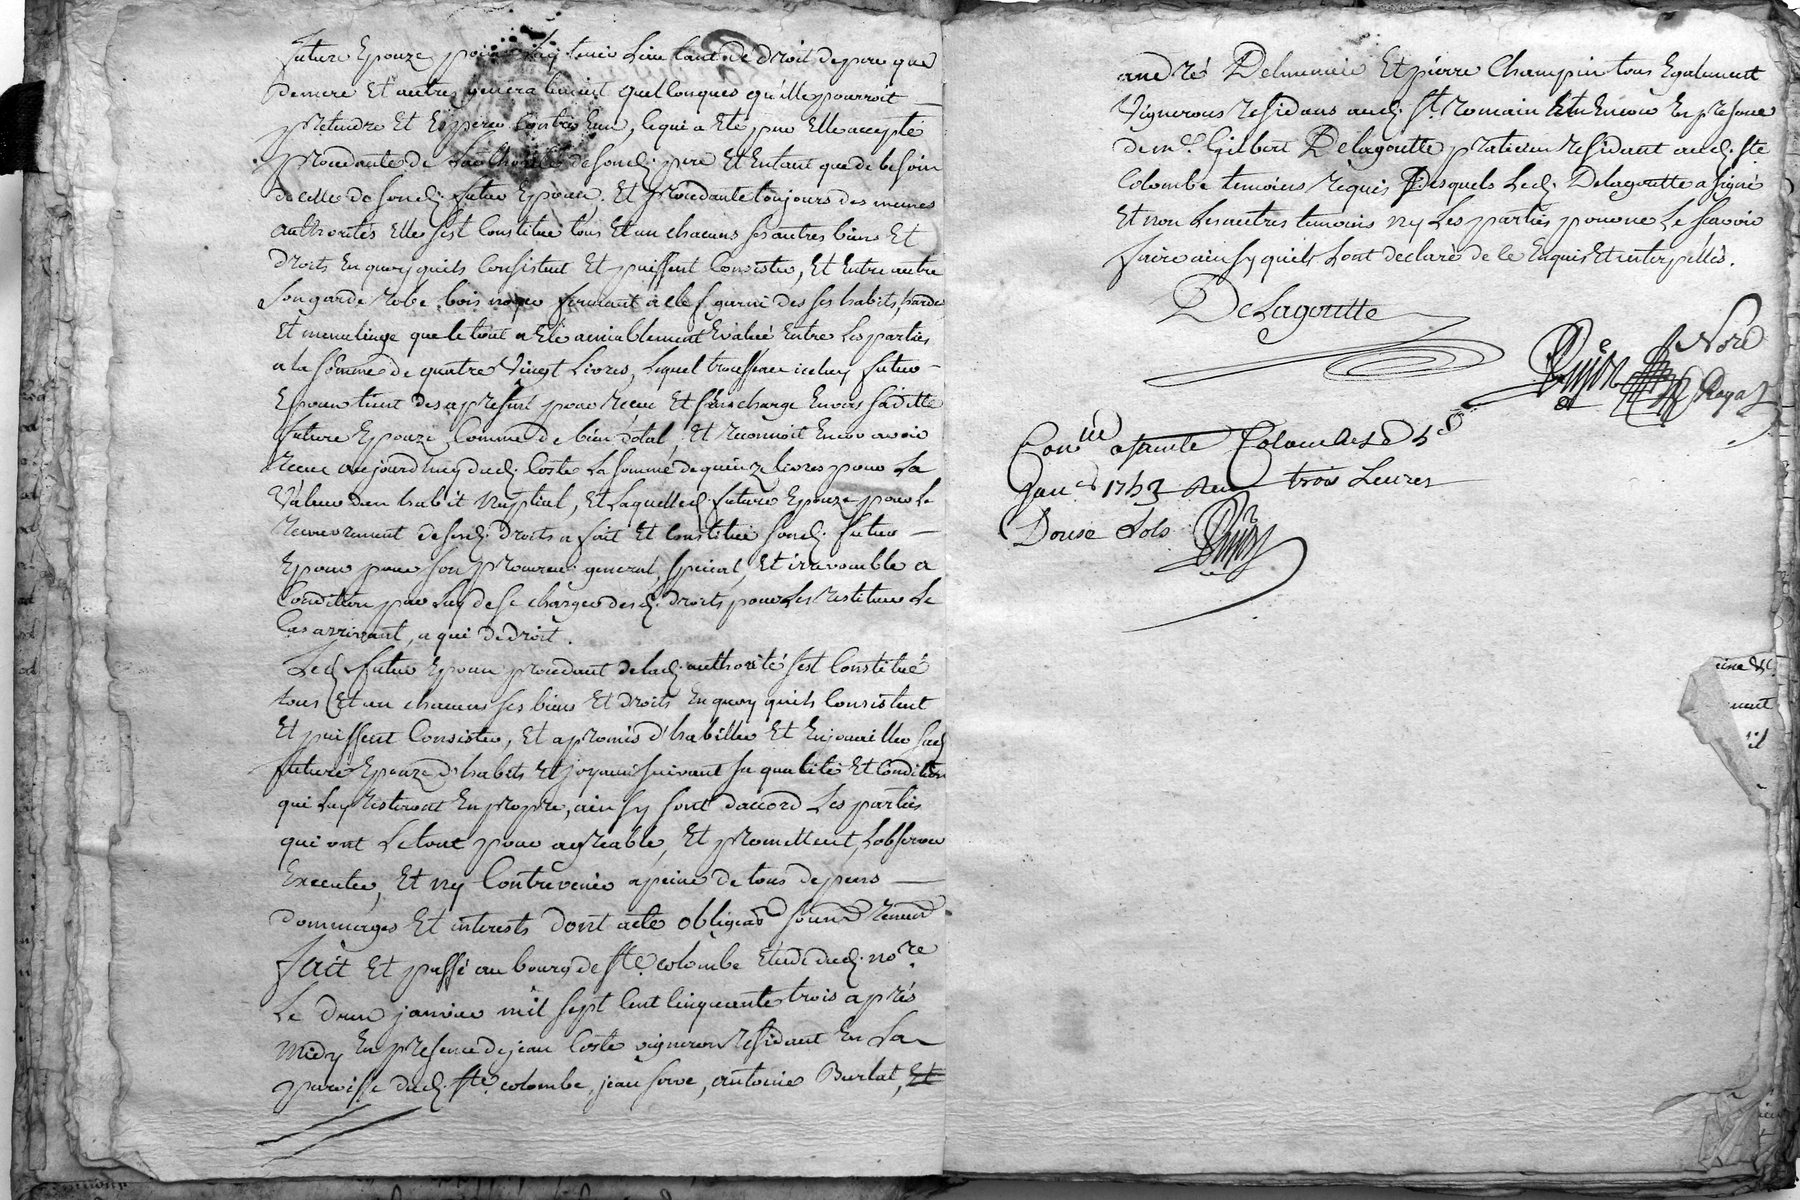 future Epouze pour luy tenir Lieu tant de droit de pere que
de mere Et autres generalement quelconques qu'ille pourroit
pretendre Et Esperer Contre Eux, Ce qui a Eté par Elle accepté
procedante de Lauthorité de sond. pere Et Entant que de besoin
de celle de sond. futur Epoux. Et procedante toujours des memes
authorités Elle s'est Constitue tous Et un chacuns ses autres biens Et
droits En quoy quils Consistent Et puissent Consister, Et Entre autre
Son garde robe bois noyer fermant a clef garni des ses habits, hardes
Et menu linge que le tout a Eté amiablement Evalué Entre Les parties
a la somme de quatre Vingt Livres, Lequel trousseau iceluy futur
Epoux tient des a present pour receu Et s'en charge Envers sa ditte
future Epouze Comme de bien dotal, Et reconnoit Encor avoir
receu aujourdhuy dud. Coste La somme de quinze livres pour La
Valeur dun habit Nuptial, Et Laquelle d. future Epouze pour le
recouvrement de sesd. droits a fait Et Constitué sond. futur
Epoux pour son procureur general, special, Et irrevocable a
Condition par Luy de se charger desd. droits pour Les restituer Le
Cas arrivant, a qui de droit.
Led. futur Epoux procedant de lad. authorité s'est Constitué
tous Et un chacuns ses biens Et droits En quoy quils Consistent
Et puissent Consister, Et a promis d'habiller Et Enjoailler sad.
future Epouze d'habits Et joyaux suivant sa qualité Et Condition
qui Luy resteront En propre, ainsy sont daccord Les parties
qui ont Le tout pour agreable, Et promettent, Lobserver
Executer, Et ny Contrevenir a peine de tous depens
dommages Et interests dont acte obligeand soumd renund
fait Et passé au bourg de Ste. colombe Etude dud. nore.
Le deux janvier mil sept Cent Cinquante trois après
Midy En presence de jean Coste vigneron residant En La
paroisse dud. Ste. colombe, jean serve, antoine Burlat, Et
andré Delmenie Et pierre Champin tous Egalement
Vignerons residans aud. St. romain Et Encor En presence
de me. Gilbert Delagoutte praticien residant aud. Ste
Colombe temoins requis Desquels Led. Delagoutte a signé
Et non Les autres temoins ny Les parties pour ne Le scavoir
faire ainsy quils Lont declaré de ce Enquis Et interpellés.
DeLagoutte
Nore
Royal
Conlle a sainte Colombe Le
janr. 1753 Reçu trois Livres
Douse sols